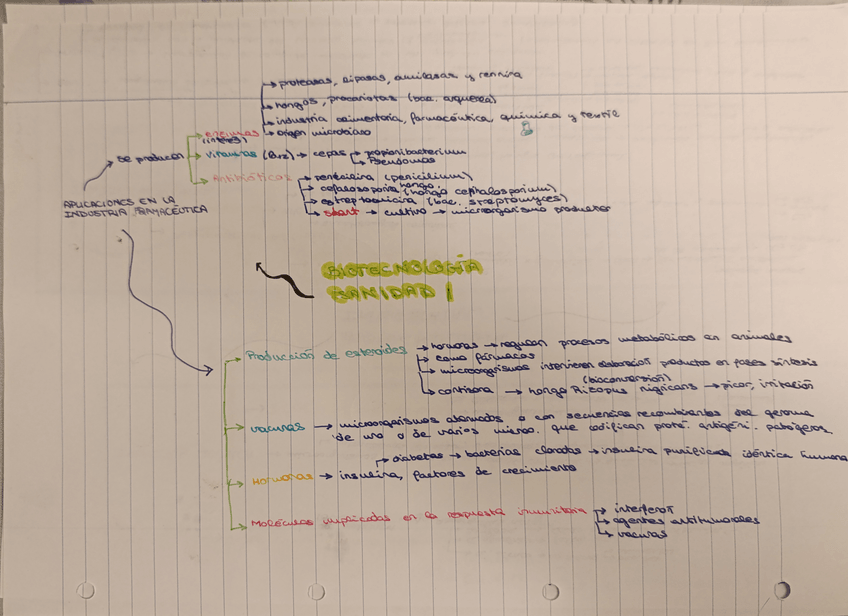 → proteasas, lipasas, amilasas y rennina
→ hongos, procariotas (bac. arqueea)
→ industria alimentaria, farmacéutica, química y textil
enzimas → origen microbiano
(interés)
Se producen
vitaminas (B12) → cepas → propionibacterium
→ Pseudomonas
Antibióticos → penicilina (penicilium)
→ cefalosporina (hongo cephalosporium)
hongo
→ estreptomicina (bac. streptomyces)
→ start → cultivo → microorganismo productor
APLICACIONES EN LA
INDUSTRIA FARMACÉUTICA
BIOTECNOLOGÍA
SANIDAD
Producción de esteroides → hormonas → regulan procesos metabólicos en animales
→ como fármacos
→ microorganismos intervienen elaboración productos en fases síntesis
(bioconversión)
→ cortisona → hongo Rizopus nigricans → picor, irritación
vacunas → microorganismos atenuados o con secuencias recombinantes del genoma
de uno o de varios microo. que codifican prote. antigéni. patógenos
→ diabetes → bacterias clonadas → insulina purificada idéntica humana
Hormonas → insulina, factores de crecimiento
Moléculas implicadas en la respuesta inmunitaria → interferón
→ agentes antitumorales
→ vacunas